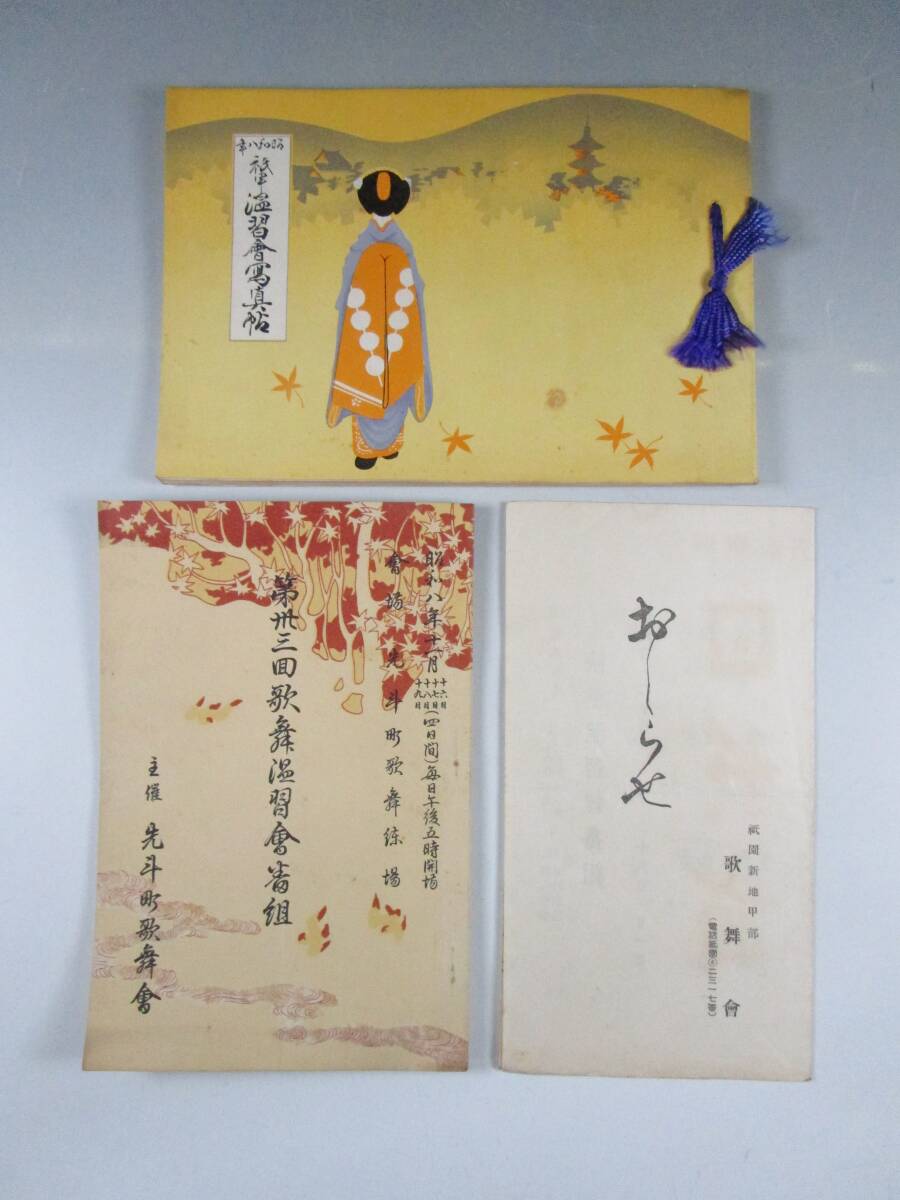 昭和八年
祇園
温習會寫真帖
昭和八年十一月
十六日
十七日
十八日
十九日
(四日間)毎日午後五時開場
會場 先斗町歌舞練場
第卅三回歌舞温習會番組
主催 先斗町歌舞會
おしらせ
祇園新地甲部
歌舞會
(電話祇園⑥二三一七番)